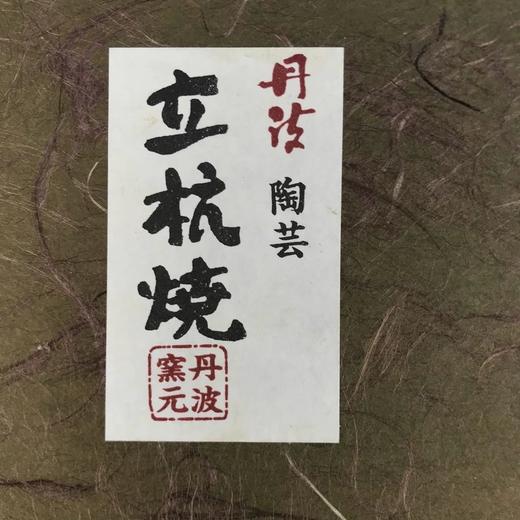 丹波
陶芸
立杭焼
丹波
窯元